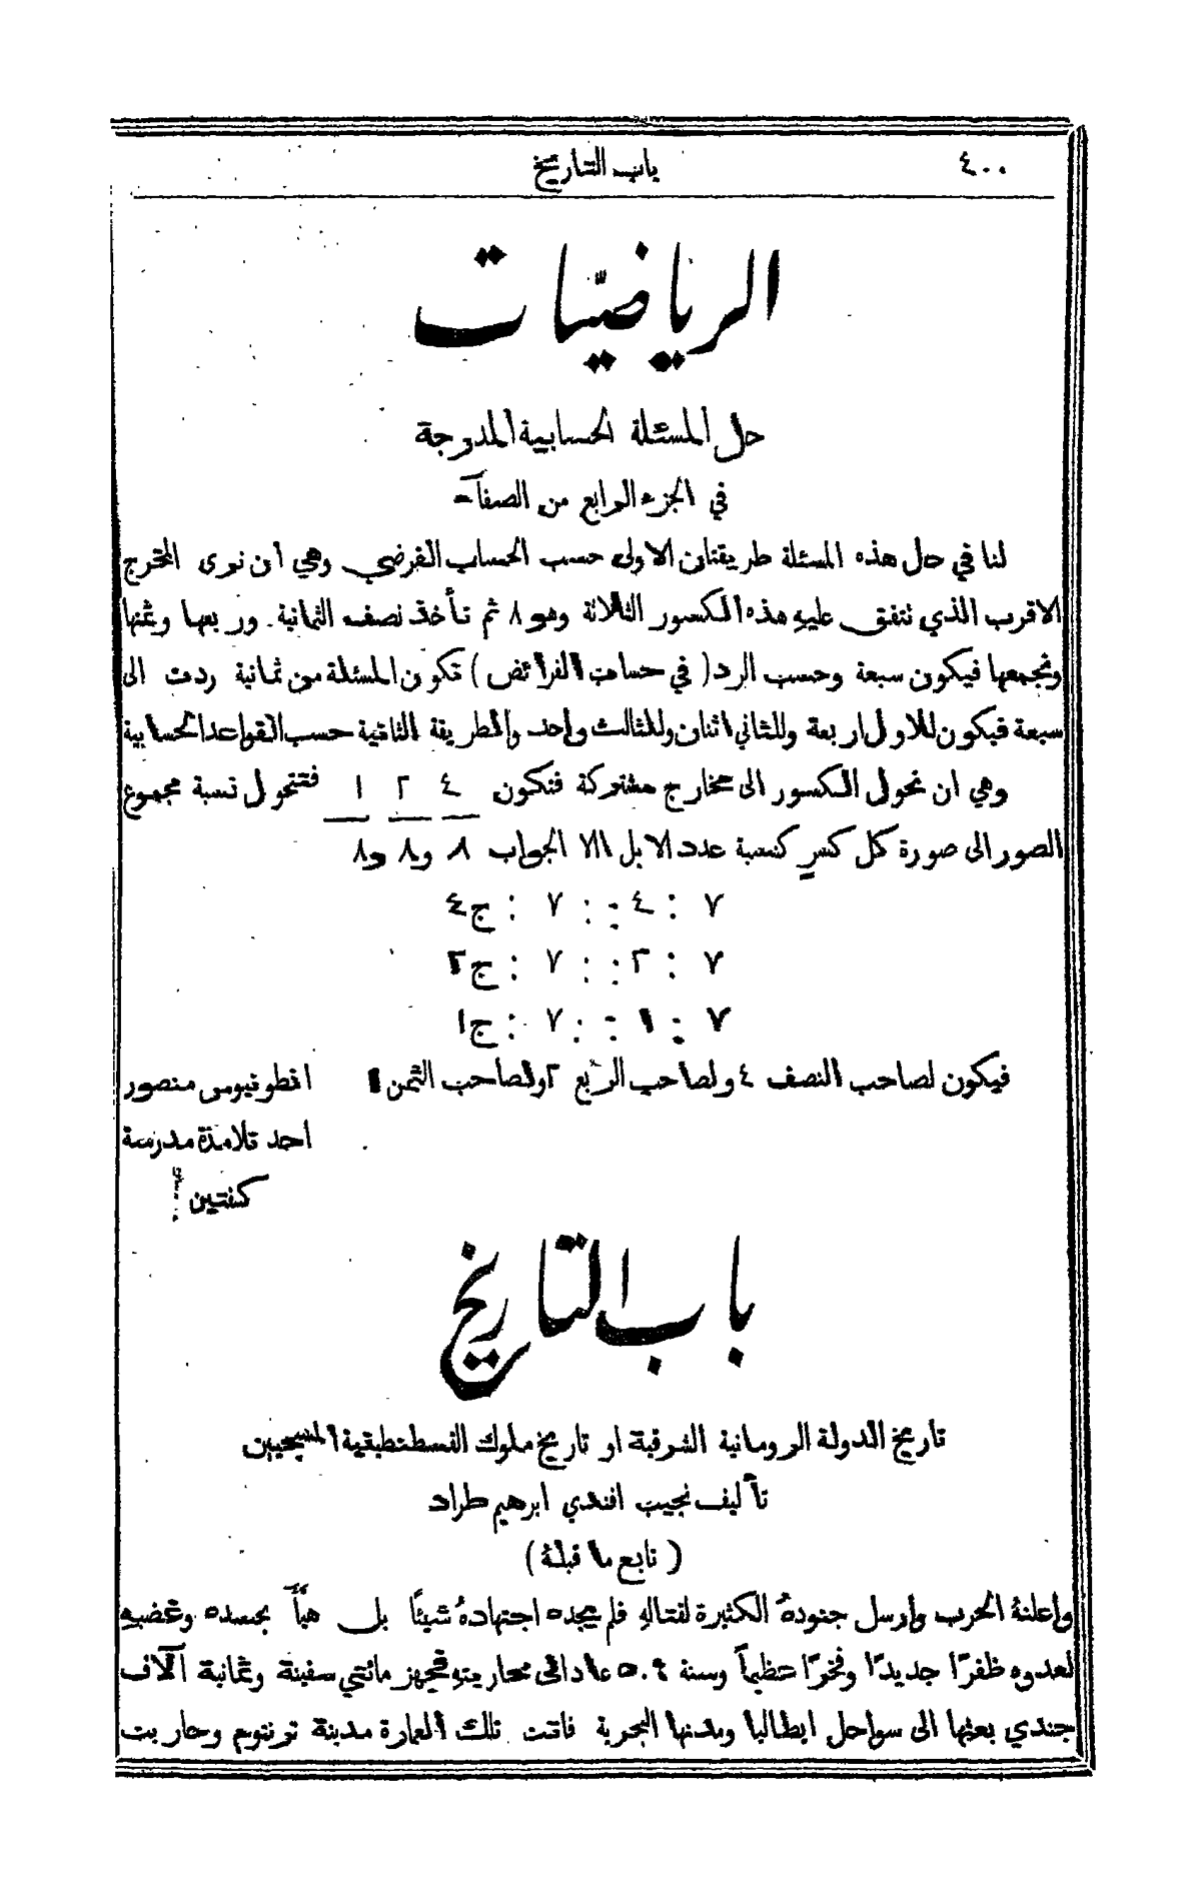 ٤٠٠ باب التاريخ
الرياضيّات
حل المسئلة الحسابية المدرجة
في الجزء الرابع من الصفا
لنا في حل هذه المسئلة طريقتان الاولى حسب الحساب الفرضي وهي ان نرى المخرج
الاقرب الذي نتفق عليهِ هذه الكسور الثلاثة وهو ٨ ثم تأخذ نصف الثمانية. وربعها وثمنها
ونجمعها فيكون سبعة وحسب الرد (في حساب الفرائض) تكون المسئلة من ثمانية ردت الى
سبعة فيكون للاول اربعة وللثاني اثنان وللثالث واحد والطريقة الثانية حسب القواعد الحسابية
وهي ان نحول الكسور الى مخارج مشتركة فتكون ٤ ٢ ١ فتتحول نسبة مجموع
الصور الى صورة كل كسرٍ كنسبة عدد الابل الا الجواب ٨ و٨ و٨
٧ : ٤ :: ٧ : ج٤
٧ : ٢ :: ٧ : ج٢
٧ : ١ :: ٧ : ج١
فيكون لصاحب النصف ٤ ولصاحب الربع ٢ ولصاحب الثمن ١ انطونيوس منصور
احد تلامذة مدرسة
كفتين
باب التاريخ
تاريخ الدولة الرومانية الشرقية او تاريخ ملوك القسطنطينية المسيحيين
تأليف نجيب افندي ابرهيم طراد
(تابع ما قبلهُ)
واعلنهُ الحرب وارسل جنودهُ الكثيرة لقتالهِ فلم يجده اجتهادهُ شيئًا بل هيأ بحسده وغضبهِ
لعدوه ظفرًا جديدًا وفخرًا عظيماً وسنة ٥٠٩ عاد الى محاربتهِ فجهز مائتي سفينة وثمانية آلاف
جندي بعثها الى سواحل ايطاليا ومدنها البحرية فاتت تلك العمارة مدينة ترنتوم وحاربت